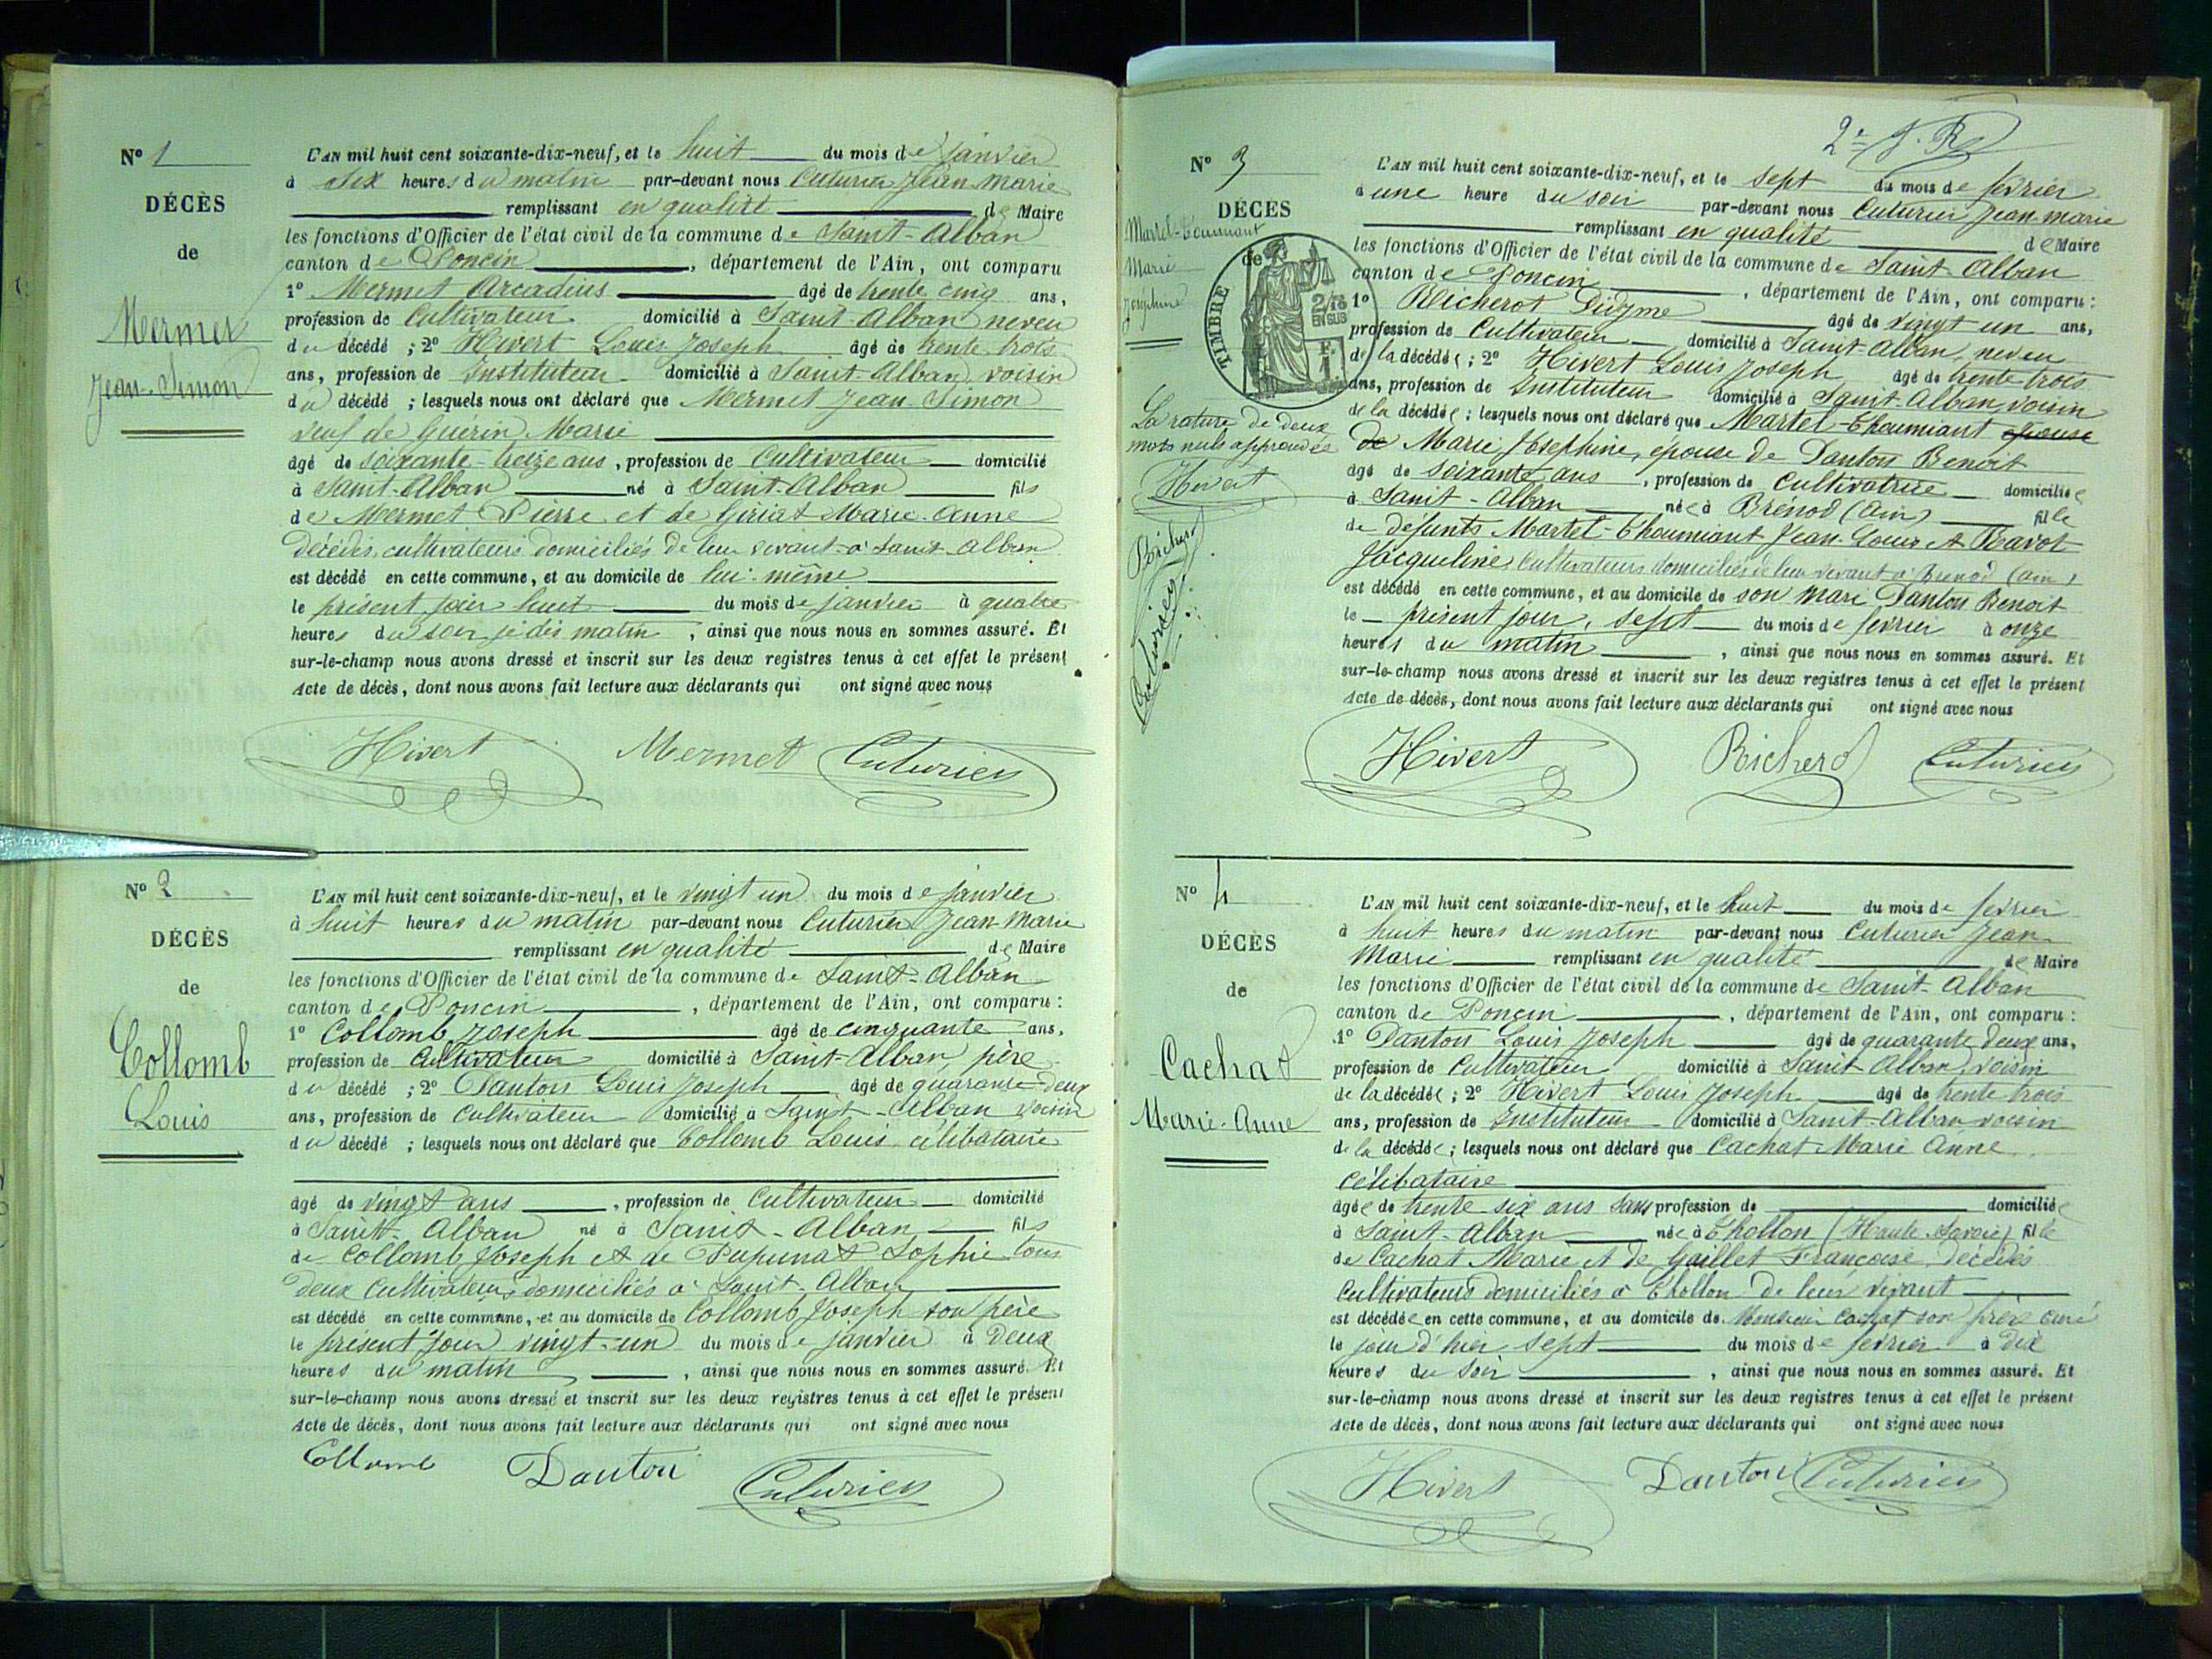 N° 1
DÉCÈS
de
Mermet
Jean-Simon
L'AN mil huit cent soixante-dix-neuf, et le huit du mois de janvier
à six heures du matin par-devant nous Cuturier Jean Marie
remplissant en qualité de Maire
les fonctions d'Officier de l'état civil de la commune de Saint-Alban
canton de Poncin, département de l'Ain, ont comparu
1° Mermet Arcadius âgé de trente cinq ans,
profession de Cultivateur domicilié à Saint-Alban neveu
du décédé ; 2° Hivert Louis Joseph âgé de trente trois
ans, profession de Instituteur domicilié à Saint-Alban, voisin
du décédé ; lesquels nous ont déclaré que Mermet Jean Simon
veuf de Guérin Marie
âgé de soixante-treize ans, profession de Cultivateur domicilié
à Saint-Alban né à Saint-Alban fils
de Mermet Pierre et de Giriat Marie-Anne
décédés, cultivateurs domiciliés de leur vivant à Saint-Alban
est décédé en cette commune, et au domicile de lui-même
le présent jour huit du mois de janvier à quatre
heures du soir je dis matin, ainsi que nous nous en sommes assuré. Et
sur-le-champ nous avons dressé et inscrit sur les deux registres tenus à cet effet le présent
Acte de décès, dont nous avons fait lecture aux déclarants qui ont signé avec nous
Hivert Mermet Cuturier
N° 2
DÉCÈS
de
Collomb
Louis
L'AN mil huit cent soixante-dix-neuf, et le vingt un du mois de janvier
à huit heures du matin par-devant nous Cuturier Jean-Marie
remplissant en qualité de Maire
les fonctions d'Officier de l'état civil de la commune de Saint-Alban
canton de Poncin, département de l'Ain, ont comparu :
1° Collomb Joseph âgé de cinquante ans,
profession de Cultivateur domicilié à Saint-Alban, père
du décédé ; 2° Danton Louis Joseph âgé de quarante-deux
ans, profession de Cultivateur domicilié à Saint-Alban voisin
du décédé ; lesquels nous ont déclaré que Collomb Louis célibataire
âgé de vingt ans, profession de Cultivateur domicilié
à Saint-Alban né à Saint-Alban fils
de Collomb Joseph et de Pupunat Sophie tous
deux Cultivateurs domiciliés à Saint-Alban
est décédé en cette commune, et au domicile de Collomb Joseph son père
le présent jour vingt-un du mois de janvier à deux
heures du matin, ainsi que nous nous en sommes assuré. Et
sur-le-champ nous avons dressé et inscrit sur les deux registres tenus à cet effet le présent
Acte de décès, dont nous avons fait lecture aux déclarants qui ont signé avec nous
Collomb Danton Cuturier
2e
N° 3
DÉCÈS
de
Martel-Thoumiant
Marie
Joséphine
TIMBRE
2/10 EN SUS
La rature de deux
mots nuls approuvée
Hivert
Richerot
Cuturier
L'AN mil huit cent soixante-dix-neuf, et le sept du mois de février
à une heure du soir par-devant nous Cuturier Jean-Marie
remplissant en qualité de Maire
les fonctions d'Officier de l'état civil de la commune de Saint-Alban
canton de Poncin, département de l'Ain, ont comparu :
1° Richerot Didyme âgé de vingt un ans,
profession de Cultivateur domicilié à Saint-Alban, neveu
de la décédée ; 2° Hivert Louis Joseph âgé de trente trois
ans, profession de Instituteur domicilié à Saint-Alban, voisin
de la décédée ; lesquels nous ont déclaré que Martel-Thoumiant épouse
de Marie Joséphine, épouse de Danton Benoit
âgé de soixante ans, profession de Cultivatrice domiciliée
à Saint-Alban née à Brénod (Ain) fille
de défunts Martel-Thoumiant Jean-Louis et Ravot
Jacqueline Cultivateurs domiciliés de leur vivant à Brénod (Ain)
est décédé en cette commune, et au domicile de son mari Danton Benoit
le présent jour, sept du mois de février à onze
heures du matin, ainsi que nous nous en sommes assuré. Et
sur-le-champ nous avons dressé et inscrit sur les deux registres tenus à cet effet le présent
Acte de décès, dont nous avons fait lecture aux déclarants qui ont signé avec nous
Hivert Richerot Cuturier
N° 4
DÉCÈS
de
Cachat
Marie-Anne
L'AN mil huit cent soixante-dix-neuf, et le huit du mois de février
à huit heures du matin par-devant nous Cuturier Jean
Marie remplissant en qualité de Maire
les fonctions d'Officier de l'état civil de la commune de Saint-Alban
canton de Poncin, département de l'Ain, ont comparu :
1° Danton Louis Joseph âgé de quarante deux ans,
profession de Cultivateur domicilié à Saint-Alban, voisin
de la décédée ; 2° Hivert Louis Joseph âgé de trente trois
ans, profession de Instituteur domicilié à Saint-Alban voisin
de la décédée ; lesquels nous ont déclaré que Cachat Marie Anne
célibataire
âgée de trente six ans sans profession de domiciliée
à Saint-Alban née à Thollon (Haute-Savoie) fille
de Cachat Marie et de Gaillet Françoise, décédés
Cultivateurs domiciliés à Thollon de leur vivant
est décédée en cette commune, et au domicile de Monsieur Cachat son frère curé
le jour d'hier sept du mois de février à dix
heures du soir, ainsi que nous nous en sommes assuré. Et
sur-le-champ nous avons dressé et inscrit sur les deux registres tenus à cet effet le présent
Acte de décès, dont nous avons fait lecture aux déclarants qui ont signé avec nous
Hivert Danton Cuturier